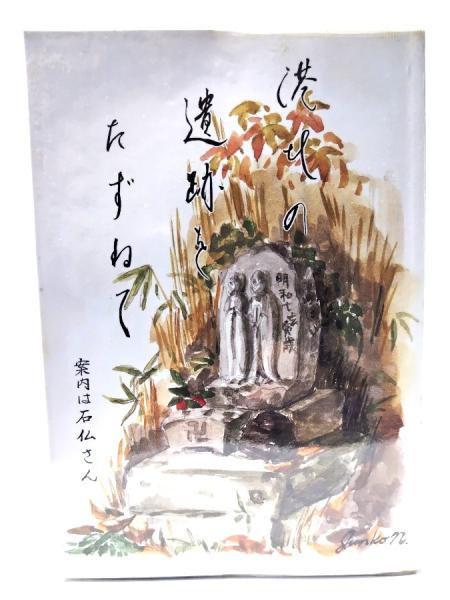 港北の
遺跡を
たずねて
案内は石仏さん
明和七寅歳
卍
Junko N.